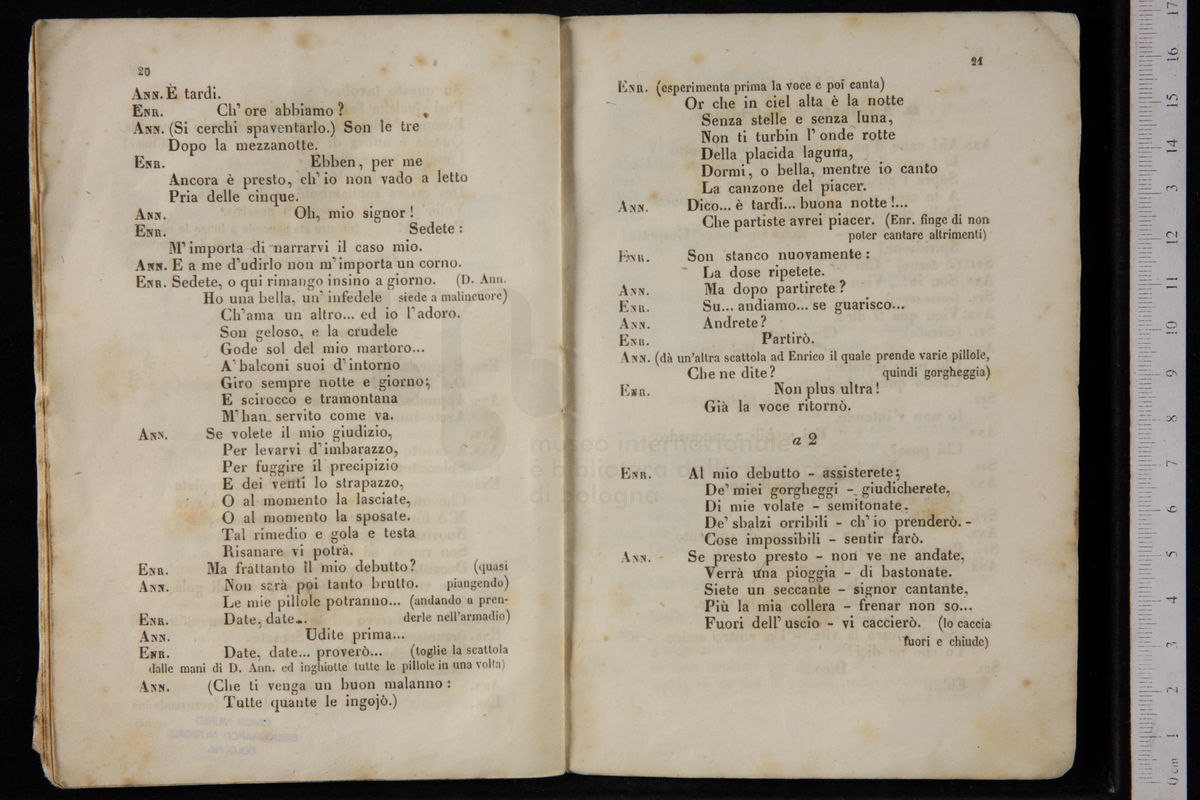 20
Ann. È tardi.
Enr. Ch' ore abbiamo ?
Ann. (Si cerchi spaventarlo.) Son le tre
Dopo la mezzanotte.
Enr. Ebben, per me
Ancora è presto, ch' io non vado a letto
Pria delle cinque.
Ann. Oh, mio signor !
Enr. Sedete :
M' importa di narrarvi il caso mio.
Ann. E a me d'udirlo non m' importa un corno.
Enr. Sedete, o qui rimango insino a giorno. (D. Ann.
Ho una bella, un' infedele siede a malincuore)
Ch'ama un altro... ed io l' adoro.
Son geloso, e la crudele
Gode sol del mio martoro...
A' balconi suoi d' intorno
Giro sempre notte e giorno;
E scirocco e tramontana
M' han servito come va.
Ann. Se volete il mio giudizio,
Per levarvi d' imbarazzo,
Per fuggire il precipizio
E dei venti lo strapazzo,
O al momento la lasciate,
O al momento la sposate.
Tal rimedio e gola e testa
Risanare vi potrà.
Enr. Ma frattanto il mio debutto? (quasi
Ann. Non sarà poi tanto brutto. piangendo)
Le mie pillole potranno... (andando a pren-
Enr. Date, date... derle nell'armadio)
Ann. Udite prima...
Enr. Date, date... proverò... (toglie la scattola
dalle mani di D. Ann. ed inghiotte tutte le pillole in una volta)
Ann. (Che ti venga un buon malanno :
Tutte quante le ingojò.)
21
Enr. (esperimenta prima la voce e poi canta)
Or che in ciel alta è la notte
Senza stelle e senza luna,
Non ti turbin l' onde rotte
Della placida laguna,
Dormi, o bella, mentre io canto
La canzone del piacer.
Ann. Dico... è tardi... buona notte !...
Che partiste avrei piacer. (Enr. finge di non
poter cantare altrimenti)
Enr. Son stanco nuovamente :
La dose ripetete.
Ann. Ma dopo partirete ?
Enr. Su... andiamo... se guarisco...
Ann. Andrete ?
Enr. Partirò.
Ann. (dà un'altra scattola ad Enrico il quale prende varie pillole,
Che ne dite ? quindi gorgheggia)
Enr. Non plus ultra !
Già la voce ritornò.
a 2
Enr. Al mio debutto - assisterete;
De' miei gorgheggi - giudicherete,
Di mie volate - semitonate,
De' sbalzi orribili - ch' io prenderò. -
Cose impossibili - sentir farò.
Ann. - Se presto presto - non ve ne andate,
Verrà una pioggia - di bastonate.
Siete un seccante - signor cantante,
Più la mia collera - frenar non so...
Fuori dell' uscio - vi caccierò. (lo caccia
fuori e chiude)
museo internazionale
e biblioteca
di bologna